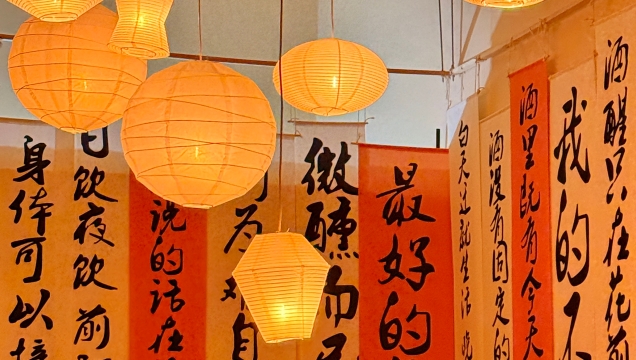 酒醒只在花前
我的不
酒里既有今天
酒没有固定的
白天迁就生活
最好的
微醺而
为
自
说的话在
日饮夜饮 前
身体可以